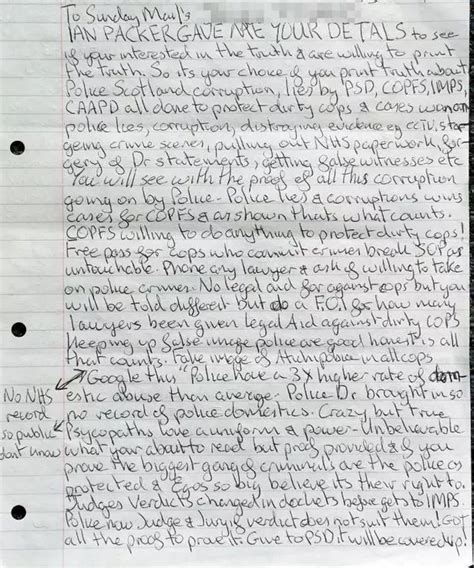 To Sunday Mail's
IAN PACKER GAVE ME YOUR DETALS to see
if your interested in the truth & are willing to print
the truth. So its your choice if you print truth about
Police Scotland corruption, lies by PSD, COPFS, IMPS,
CAAPD all done to protect dirty cops & cases won on
police lies, corruption, distroying evidence eg CCTV, sta-
geing crime scenes, pulling out NHS paperwork, for-
gery of Dr statements, getting false witnesses etc
You will see with the proof of all this corruption
going on by Police. Police lies & corruptions wins
cases for COPFS & as shown thats what counts.
COPFS willing to do anything to protect dirty cops!
Free pass for cops who commit crimes break SOP as
untouchable. Phone any lawyer & ask if willing to take
on police crimes. No legal aid for against cops but you
will be told different but do a F.O.I for how many
lawyers been given Legal Aid against dirty cops
Keeping up false image police are good honest is all
that counts. Fake image of in all cops
Google this "Police have a 3X higher rate of dom-
estic abuse than average. Police Dr brought in so
no record of police domestics. Crazy but true
No NHS
record
so public
dont know
Psycopaths love a uniform & power. Unbelievable
what your about to read but proof provided & if you
prove the biggest gang of criminals are the police as
protected & Egos so big believe its their right to.
Judges Verdicts changed in dockets before gets to IMPS.
Police now Judge & Jury if verdict does not suit them! GOT
all the proof to prove it. Give to PSD it will be covered up!